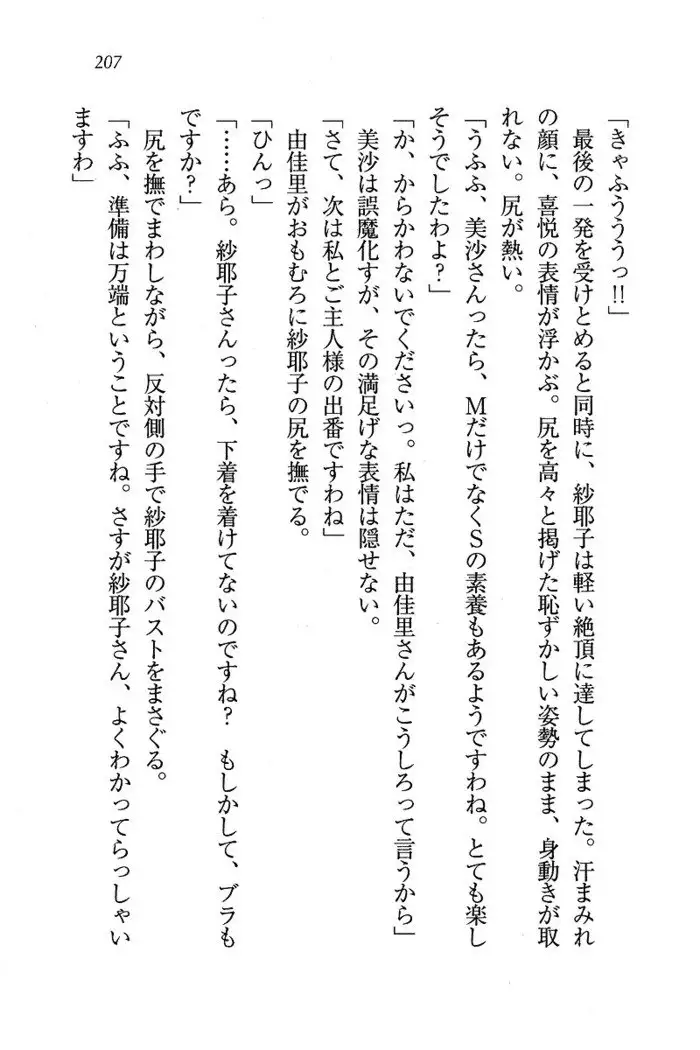 207
「きゃふううぅっ!!」
　最後の一発を受けとめると同時に、紗耶子は軽い絶頂に達してしまった。汗まみれ
の顔に、喜悦の表情が浮かぶ。尻を高々と掲げた恥ずかしい姿勢のまま、身動きが取
れない。尻が熱い。
「うふふ、美沙さんったら、ＭだけでなくＳの素養もあるようですわね。とても楽し
そうでしたわよ?」
「か、からかわないでくださいっ。私はただ、由佳里さんがこうしろって言うから」
　美沙は誤魔化すが、その満足げな表情は隠せない。
「さて、次は私とご主人様の出番ですわね」
　由佳里がおもむろに紗耶子の尻を撫でる。
「ひんっ」
「……あら。紗耶子さんったら、下着を着けてないのですね?　もしかして、ブラも
ですか?」
　尻を撫でまわしながら、反対側の手で紗耶子のバストをまさぐる。
「ふふ、準備は万端ということですね。さすが紗耶子さん、よくわかってらっしゃい
ますわ」